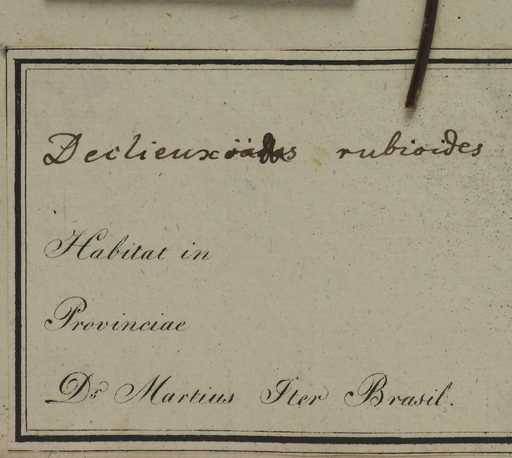 rubioides
Habitat in
Provinciae
Dr. Martius Iter Brasil.